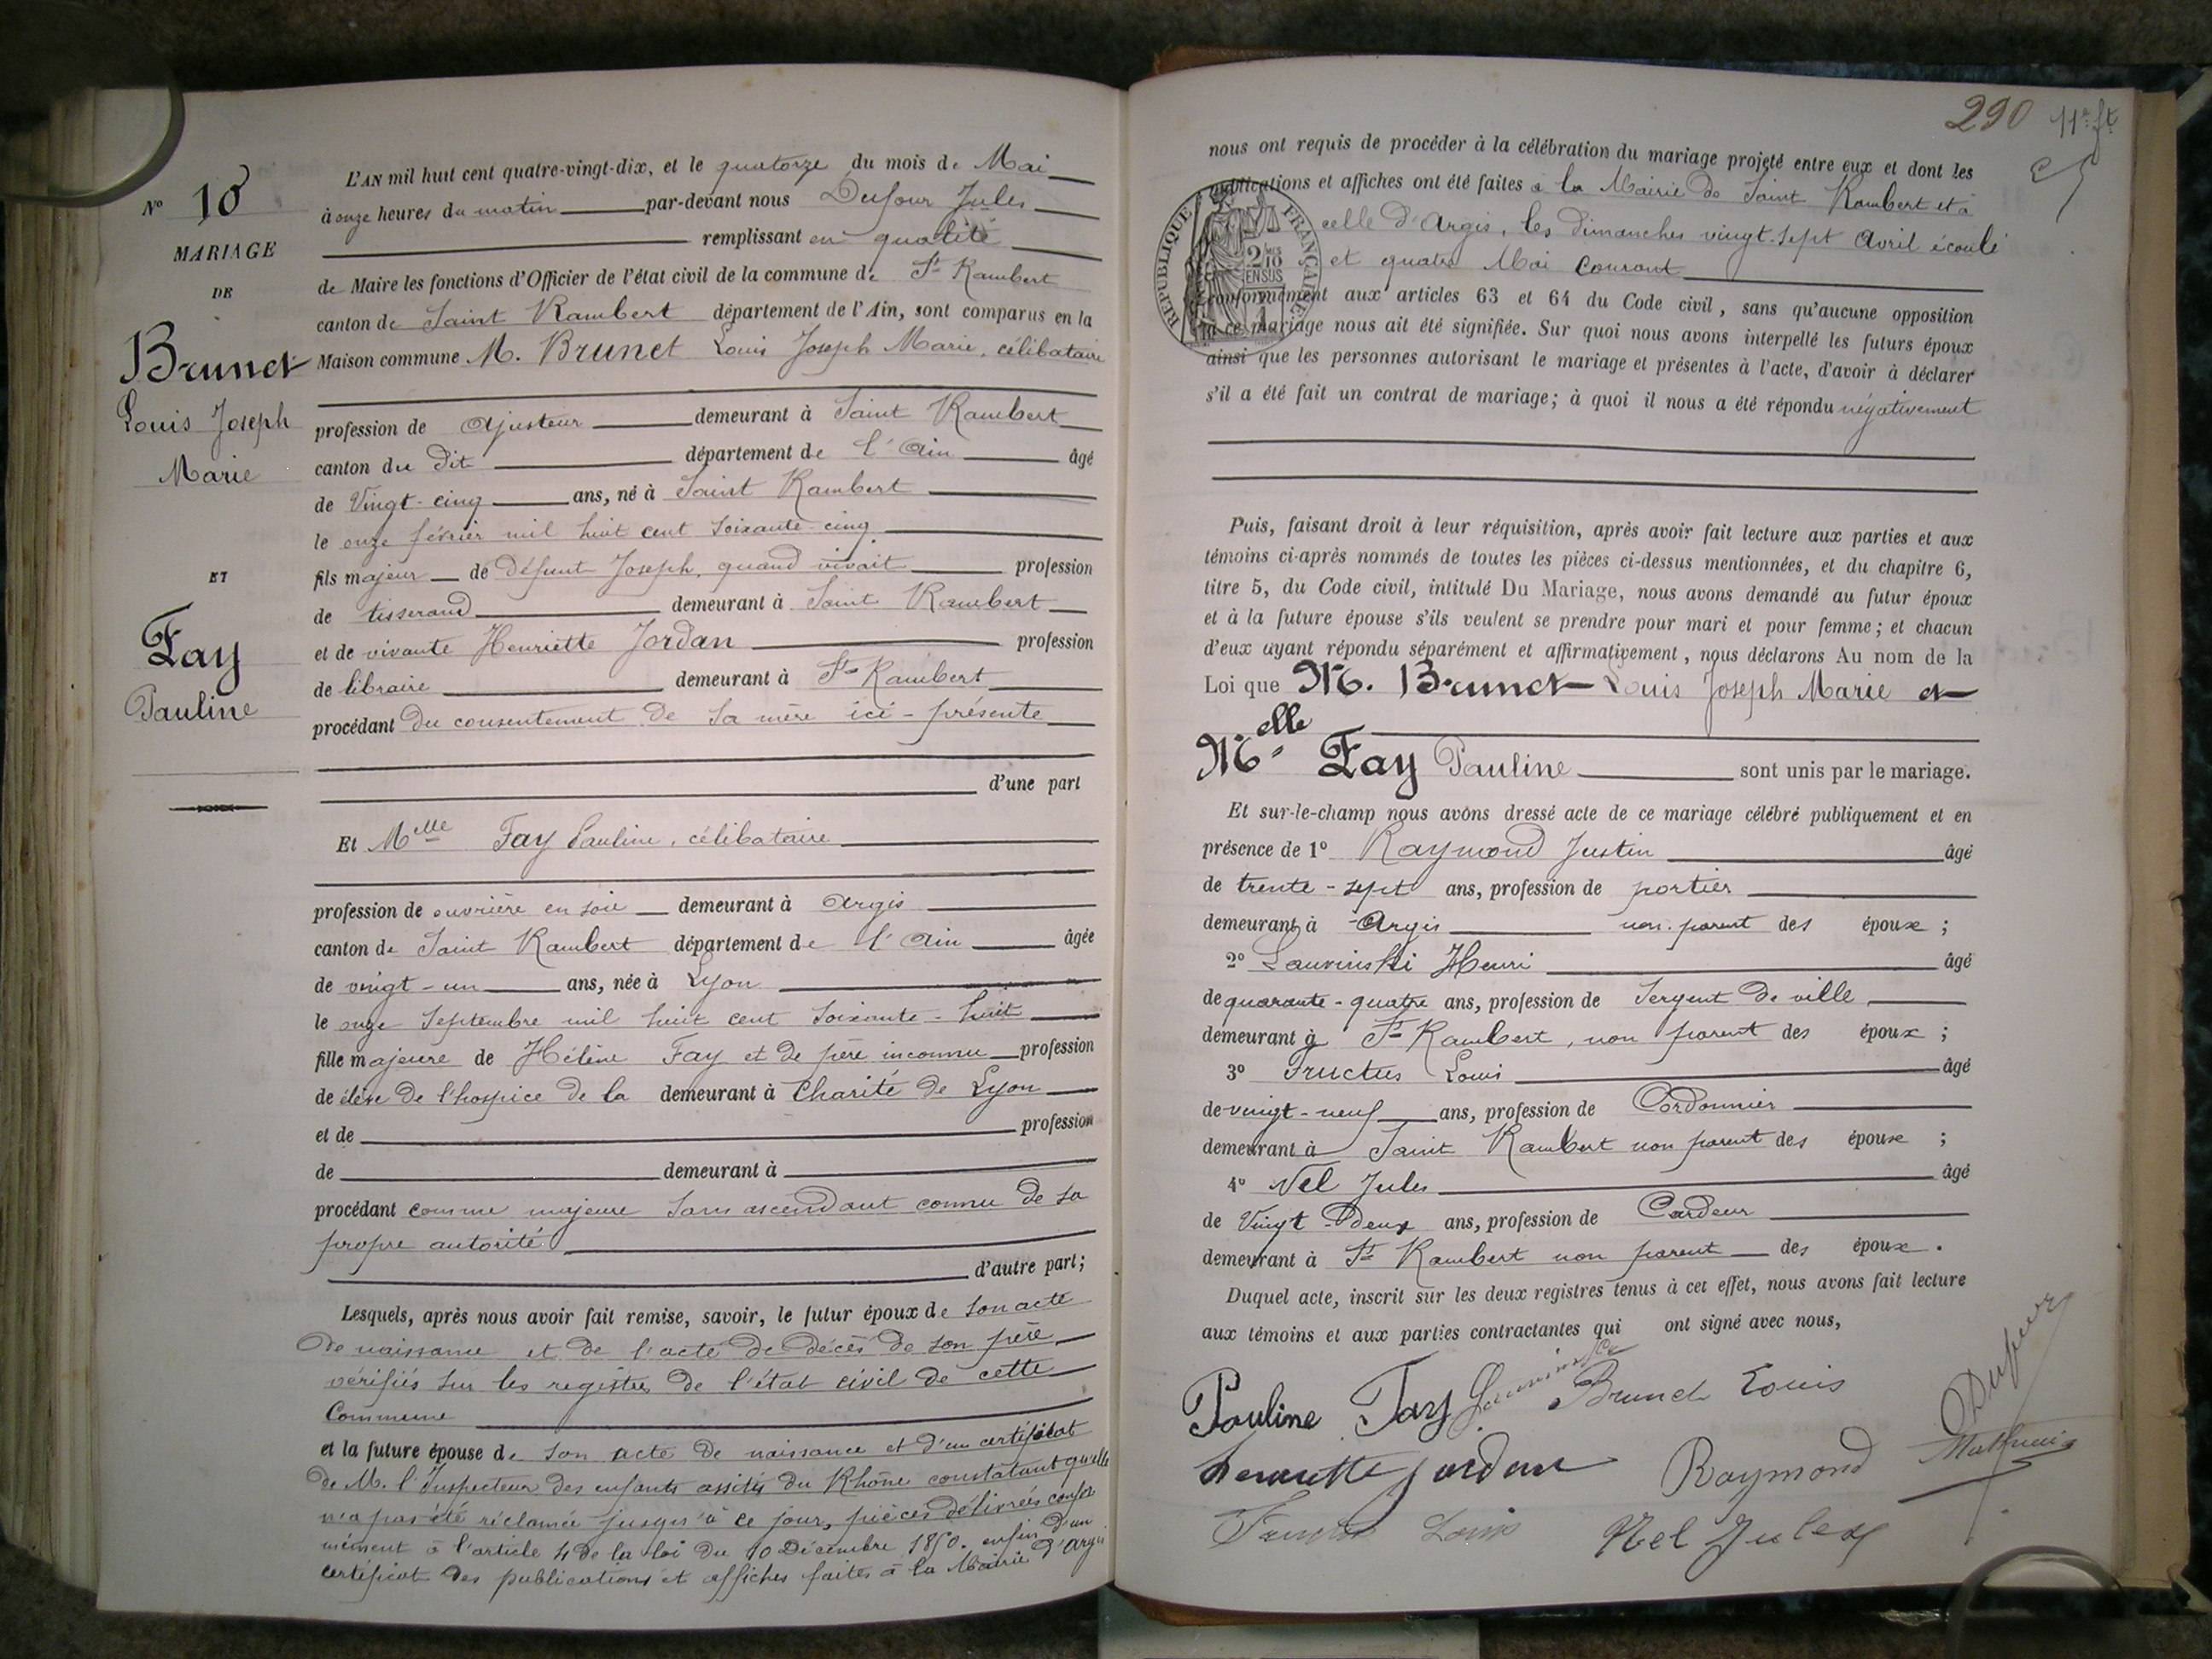 N° 10
MARIAGE
DE
Brunet
Louis Joseph
Marie
ET
Fay
Pauline
L'AN mil huit cent quatre-vingt-dix, et le quatorze du mois de Mai
à onze heures du matin par-devant nous Dufour Jules
remplissant en qualité
de Maire les fonctions d'Officier de l'état civil de la commune de St Rambert
canton de Saint Rambert département de l'Ain, sont comparus en la
Maison commune M. Brunet Louis Joseph Marie, célibataire
profession de ajusteur demeurant à Saint Rambert
canton du dit département de l'Ain âgé
de Vingt-cinq ans, né à Saint Rambert
le onze février mil huit cent soixante-cinq
fils majeur de défunt Joseph, quand vivait profession
de tisserand demeurant à Saint Rambert
et de vivante Henriette Jordan profession
de libraire demeurant à St Rambert
procédant du consentement de sa mère ici-présente
d'une part
Et Melle Fay Pauline, célibataire
profession de ouvrière en soie demeurant à Argis
canton de Saint Rambert département de l'Ain âgée
de vingt-un ans, née à Lyon
le onze Septembre mil huit cent soixante-huit
fille majeure de Hélène Fay et de père inconnu profession
de élève de l'hospice de la demeurant à Charité de Lyon
et de profession
de demeurant à
procédant comme majeure sans ascendant connu de sa
propre autorité
d'autre part;
Lesquels, après nous avoir fait remise, savoir, le futur époux de son acte
de naissance et de l'acte de décès de son père
vérifiés sur les registres de l'état civil de cette
Commune
et la future épouse de son acte de naissance et d'un certificat
de M. l'Inspecteur des enfants assités du Rhône constatant qu'elle
n'a pas été réclamée jusqu'à ce jour, pièces délivrées confor
mément à l'article 4 de la loi du 10 Décembre 1850. enfin d'un
certificat des publications et affiches faites à la Mairie d'Argis
290
nous ont requis de procéder à la célébration du mariage projeté entre eux et dont les
publications et affiches ont été faites à la Mairie de Saint Rambert et à
celle d'Argis, les dimanches vingt-sept Avril écoulé
et quatre Mai courant
REPUBLIQUE FRANÇAISE
conformément aux articles 63 et 64 du Code civil, sans qu'aucune opposition
à ce mariage nous ait été signifiée. Sur quoi nous avons interpellé les futurs époux
ainsi que les personnes autorisant le mariage et présentes à l'acte, d'avoir à déclarer
s'il a été fait un contrat de mariage; à quoi il nous a été répondu négativement
Puis, faisant droit à leur réquisition, après avoir fait lecture aux parties et aux
témoins ci-après nommés de toutes les pièces ci-dessus mentionnées, et du chapitre 6,
titre 5, du Code civil, intitulé Du Mariage, nous avons demandé au futur époux
et à la future épouse s'ils veulent se prendre pour mari et pour femme; et chacun
d'eux ayant répondu séparément et affirmativement, nous déclarons Au nom de la
Loi que M. Brunet Louis Joseph Marie et
Melle Fay Pauline sont unis par le mariage.
Et sur-le-champ nous avons dressé acte de ce mariage célébré publiquement et en
présence de 1° Raymond Justin âgé
de trente-sept ans, profession de portier
demeurant à Argis non parent des époux;
2° Lauvinski Henri âgé
de quarante-quatre ans, profession de Sergent de ville
demeurant à St Rambert, non parent des époux;
3° Fructus Louis âgé
de vingt-neuf ans, profession de Cordonnier
demeurant à Saint Rambert non parent des époux;
4° Nel Jules âgé
de Vingt-deux ans, profession de Cardeur
demeurant à St Rambert non parent des époux.
Duquel acte, inscrit sur les deux registres tenus à cet effet, nous avons fait lecture
aux témoins et aux parties contractantes qui ont signé avec nous,
Pauline Fay Brunet Louis Dufour
henriette jordan Raymond
Louis Nel Jules